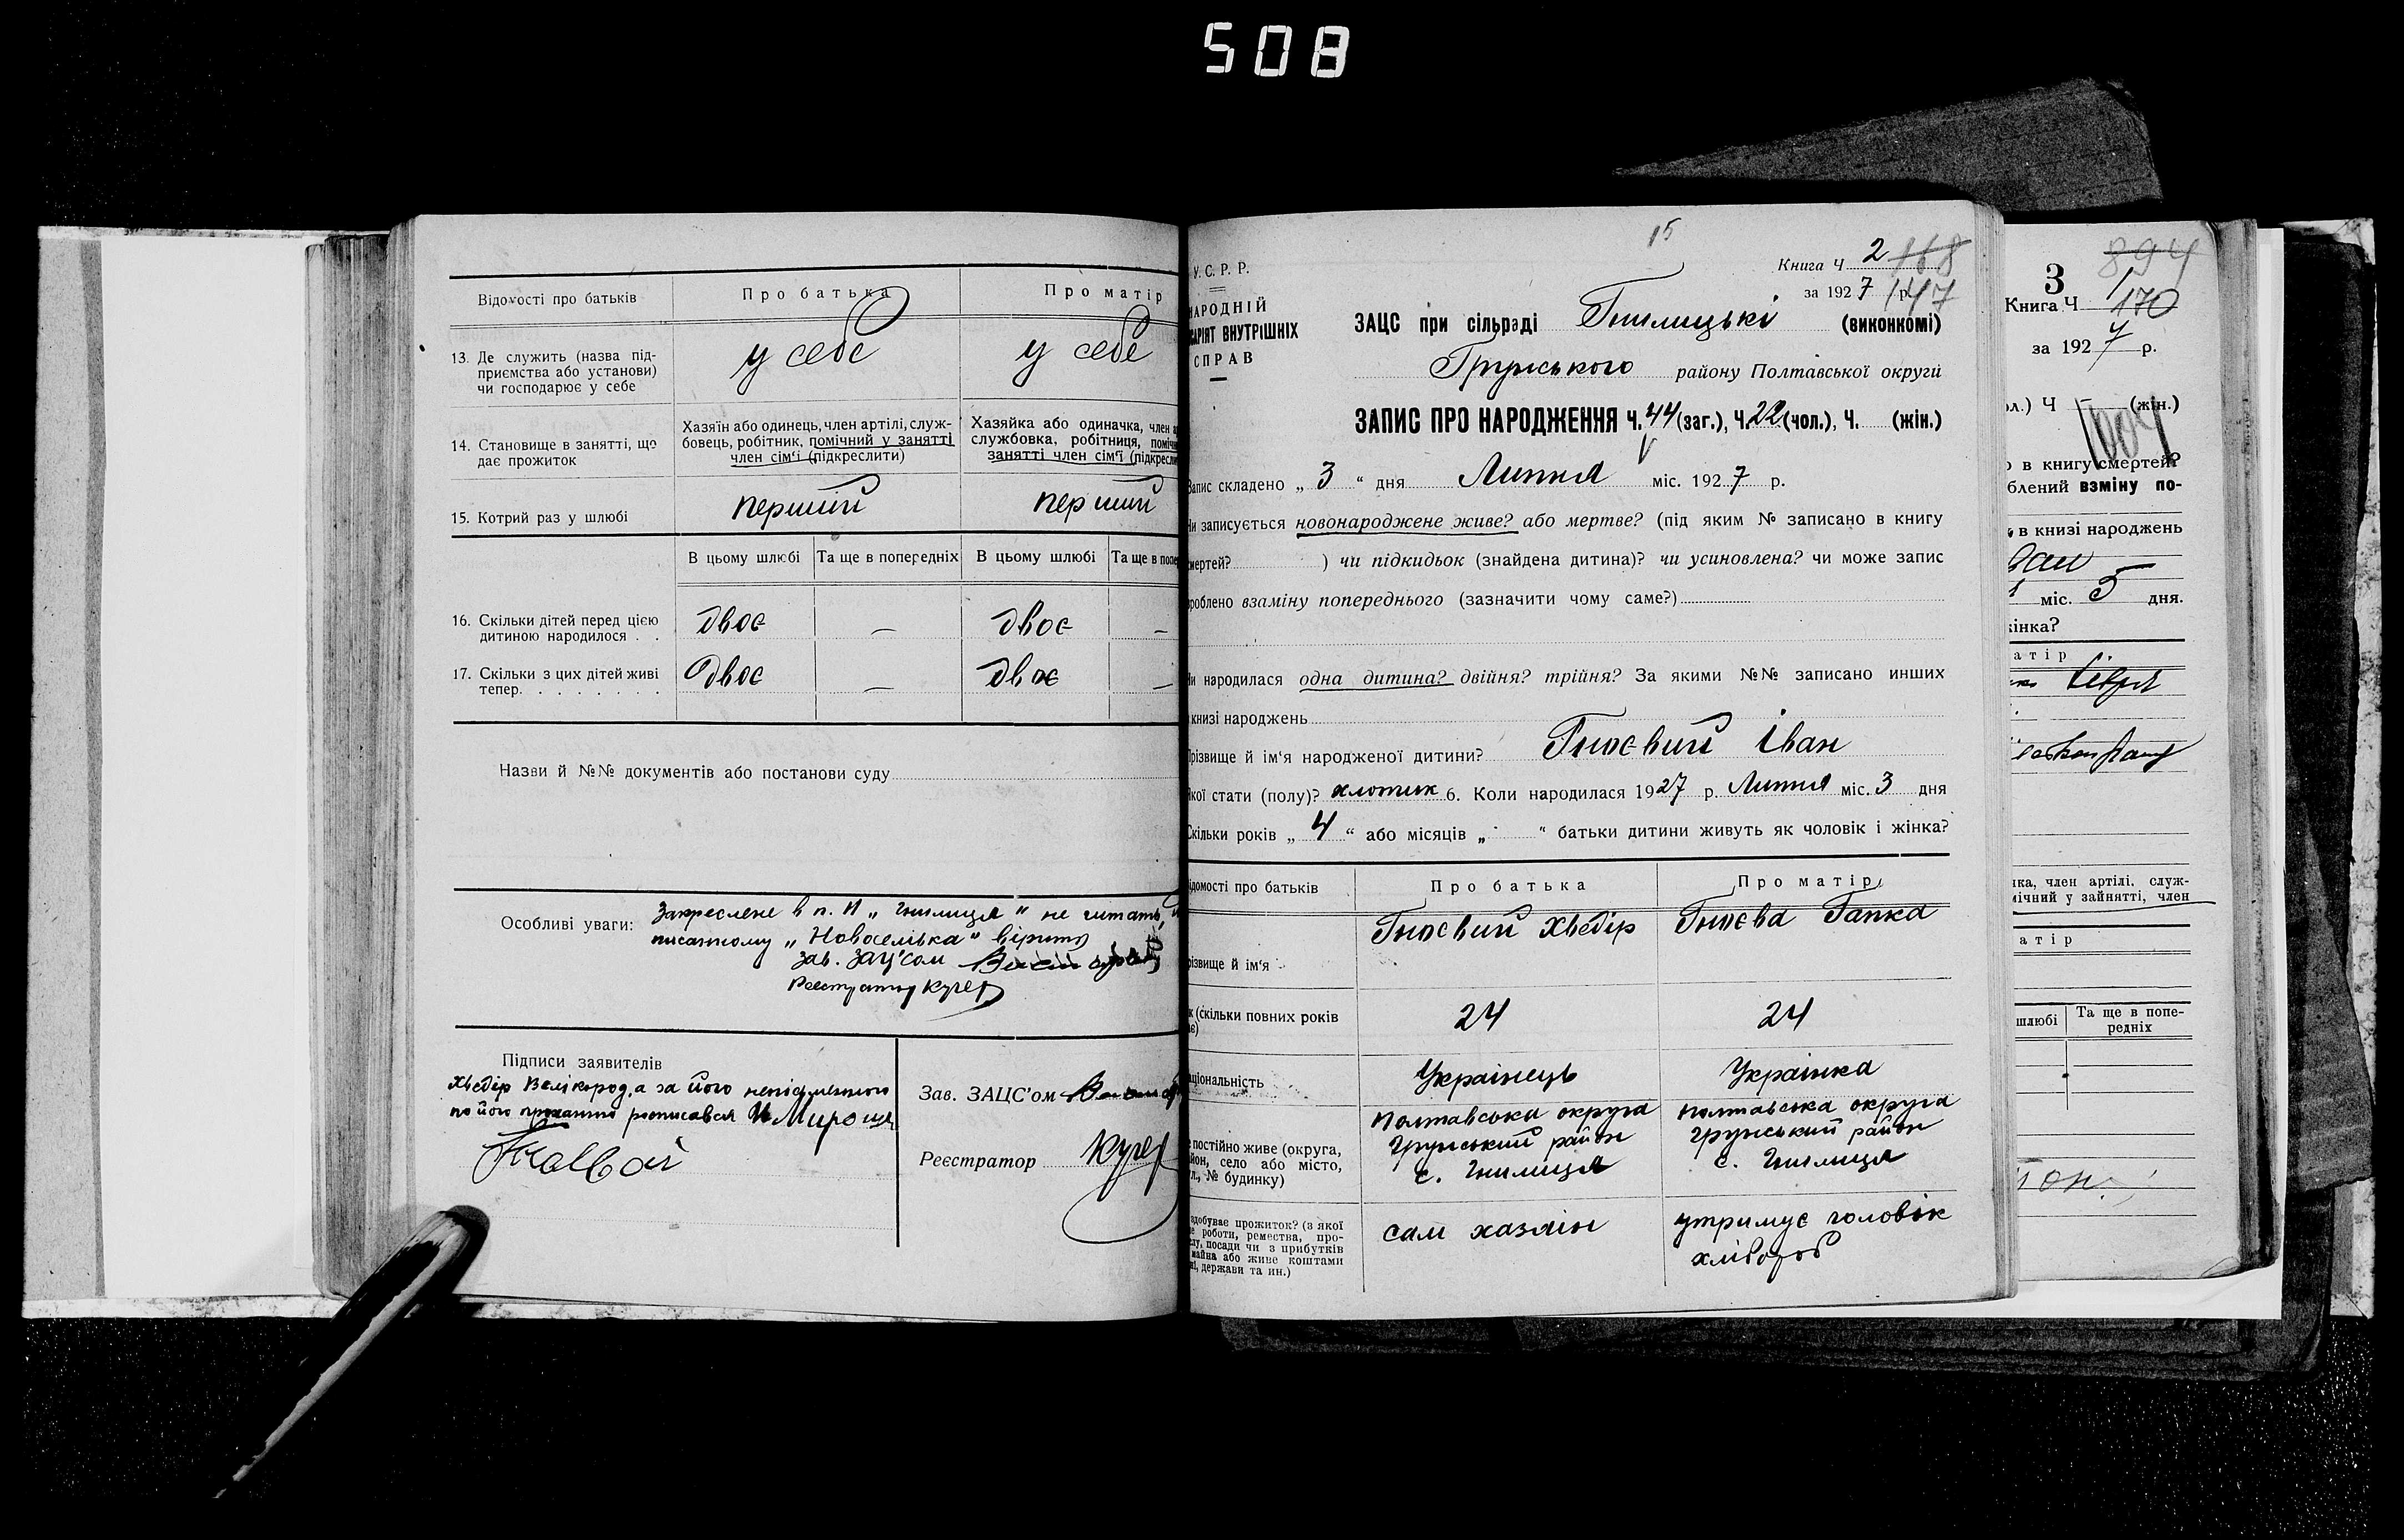 508
Відомості про батьків
Про батька
Про матір
13. Де служить (назва під-
приємства або установи)
чи господарює у себе
у себе
у себе
14. Становище в занятті, що
дає прожиток
Хазяїн або одинець, член артілі, служ-
бовець, робітник, помічний у занятті
член сім'ї (підкреслити)
Хазяйка або одиначка, член а
службовка, робітниця, поміч
занятті член сім'ї (підкресли
15. Котрий раз у шлюбі
перший
перший
В цьому шлюбі
Та ще в попередніх
В цьому шлюбі
Та ще в попе
16. Скільки дітей перед цією
дитиною народилося . .
двоє
—
двоє
—
17. Скільки з цих дітей живі
тепер. . . . . . . .
двоє
—
двоє
—
Назви й №№ документів або постанови суду
Особливі уваги:
Закреслене в п. 11 „Гнилиця" не читать,
писанному „Новоселівка" вірить
Зав. Загс'ом
Реєстратор Кучер
Підписи заявителів
Хведір Велікород, а за його неписьменного
по його проханню росписався Мироши
Зав. ЗАЦС'ом
Реєстратор Кучер
15
У. С. Р. Р.
НАРОДНІЙ
САРІЯТ ВНУТРІШНІХ
СПРАВ
Книга Ч 2 168
за 1927 р. 147
ЗАЦС при сільраді Гнилицькі (виконкомі)
Грунського району Полтавської округи
ЗАПИС ПРО НАРОДЖЕННЯ Ч. 44 (заг.), Ч. 22 (чол.), Ч. (жін.)
Запис складено „ 3 " дня Липня міс. 1927 р.
Чи записується новонароджене живе? або мертве? (під яким № записано в книгу
смертей? ) чи підкидьок (знайдена дитина)? чи усиновлена? чи може запис
зроблено взаміну попереднього (зазначити чому саме?)
Чи народилася одна дитина? двійня? трійня? За якими №№ записано инших
книзі народжень
Прізвище й ім'я народженої дитини? Гноєвий Іван
Якої стати (полу)? хлопчик 6. Коли народилася 1927 р. Липня міс. 3 дня
Скільки років „ 4 " або місяців „ " батьки дитини живуть як чоловік і жінка?
ідомості про батьків
Про батька
Про матір
різвище й ім'я
Гноєвий Хведір
Гноєва Гапка
к (скільки повних років
ає)
24
24
ціональність
Українець
Українка
е постійно живе (округа,
йон, село або місто,
л., № будинку)
Полтавська округа
Грунський район
с. Гнилиця
Полтавська округа
Грунський район
с. Гнилиця
здобуває прожиток? (з якої
е роботи, ремества, про-
лу, посади чи з прибутків
майна або живе коштами
ні, держави та ин.)
сам хазяін
утримує чоловік
хлібороб
3
894
Книга Ч 170
за 1927 р.
ол.) Ч — (жін.)
1004
о в книгу смертей?
блений взміну по-
в книзі народжень
міс. 5 дня.
інка?
атір
ка, член артілі, служ-
мічний у зайнятті, член
атір
шлюбі
Та ще в попе-
редніх